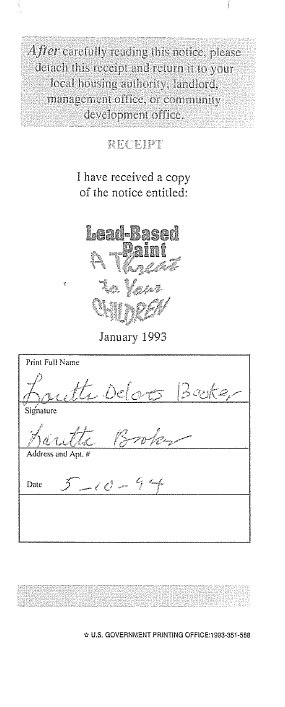 After carefully reading this notice, please
detach this receipt and return it to your
local housing authority, landlord,
management office, or community
development office.
RECEIPT
I have received a copy
of the notice entitled:
Lead-Based
Paint
A Threat
to Your
CHILDREN
January 1993
Print Full Name
Loretta Delores Booker
Signature
Loretta Booker
Address and Apt. #
Date 5-10-94
☆ U.S. GOVERNMENT PRINTING OFFICE:1993-351-588